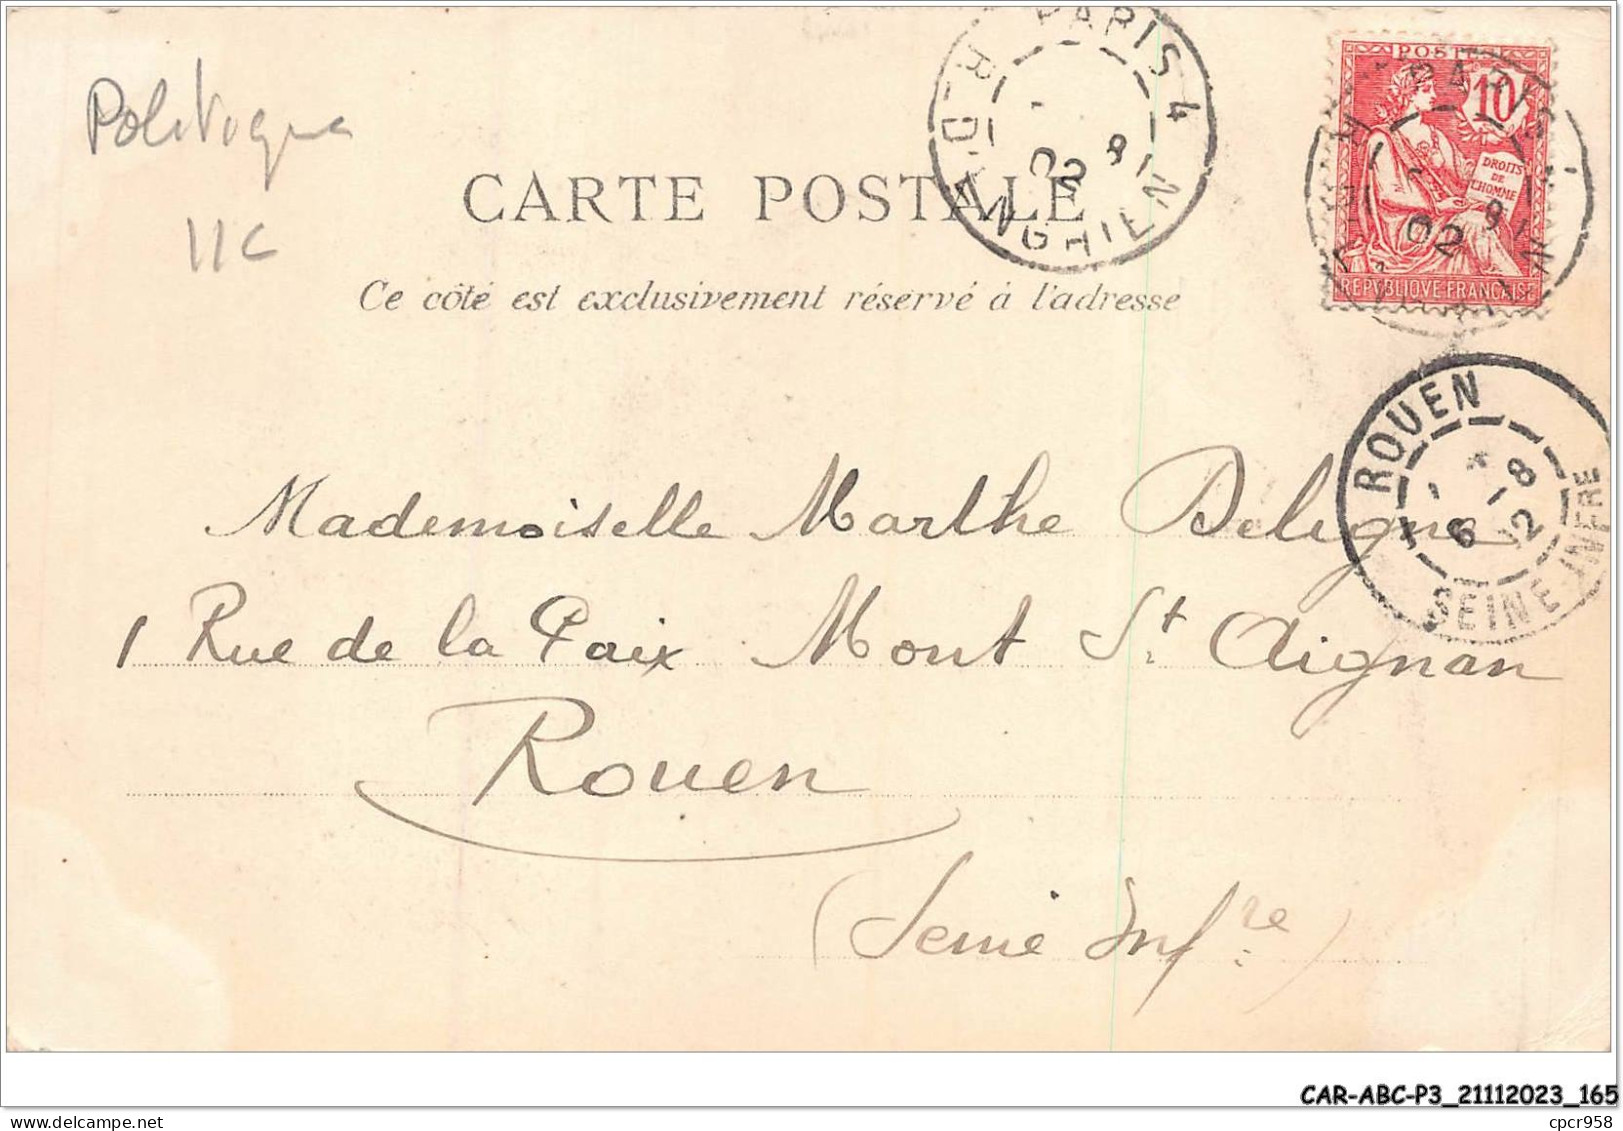 Politique
11c
PARIS 4
R. D'ANGHIEN
8
02
POSTES
10
DROITS
DE
L'HOMME
REPVBLIQVE FRANÇAISE
PARIS
8
02
CARTE POSTALE
Ce côté est exclusivement réservé à l'adresse
ROUEN
6 -8
02
SEINE-INFRE
Mademoiselle Marthe Deligne
1 Rue de la Paix Mont St. Aignan
Rouen
(Seine Infre)
CAR-ABC-P3_21112023_165
cpcr958